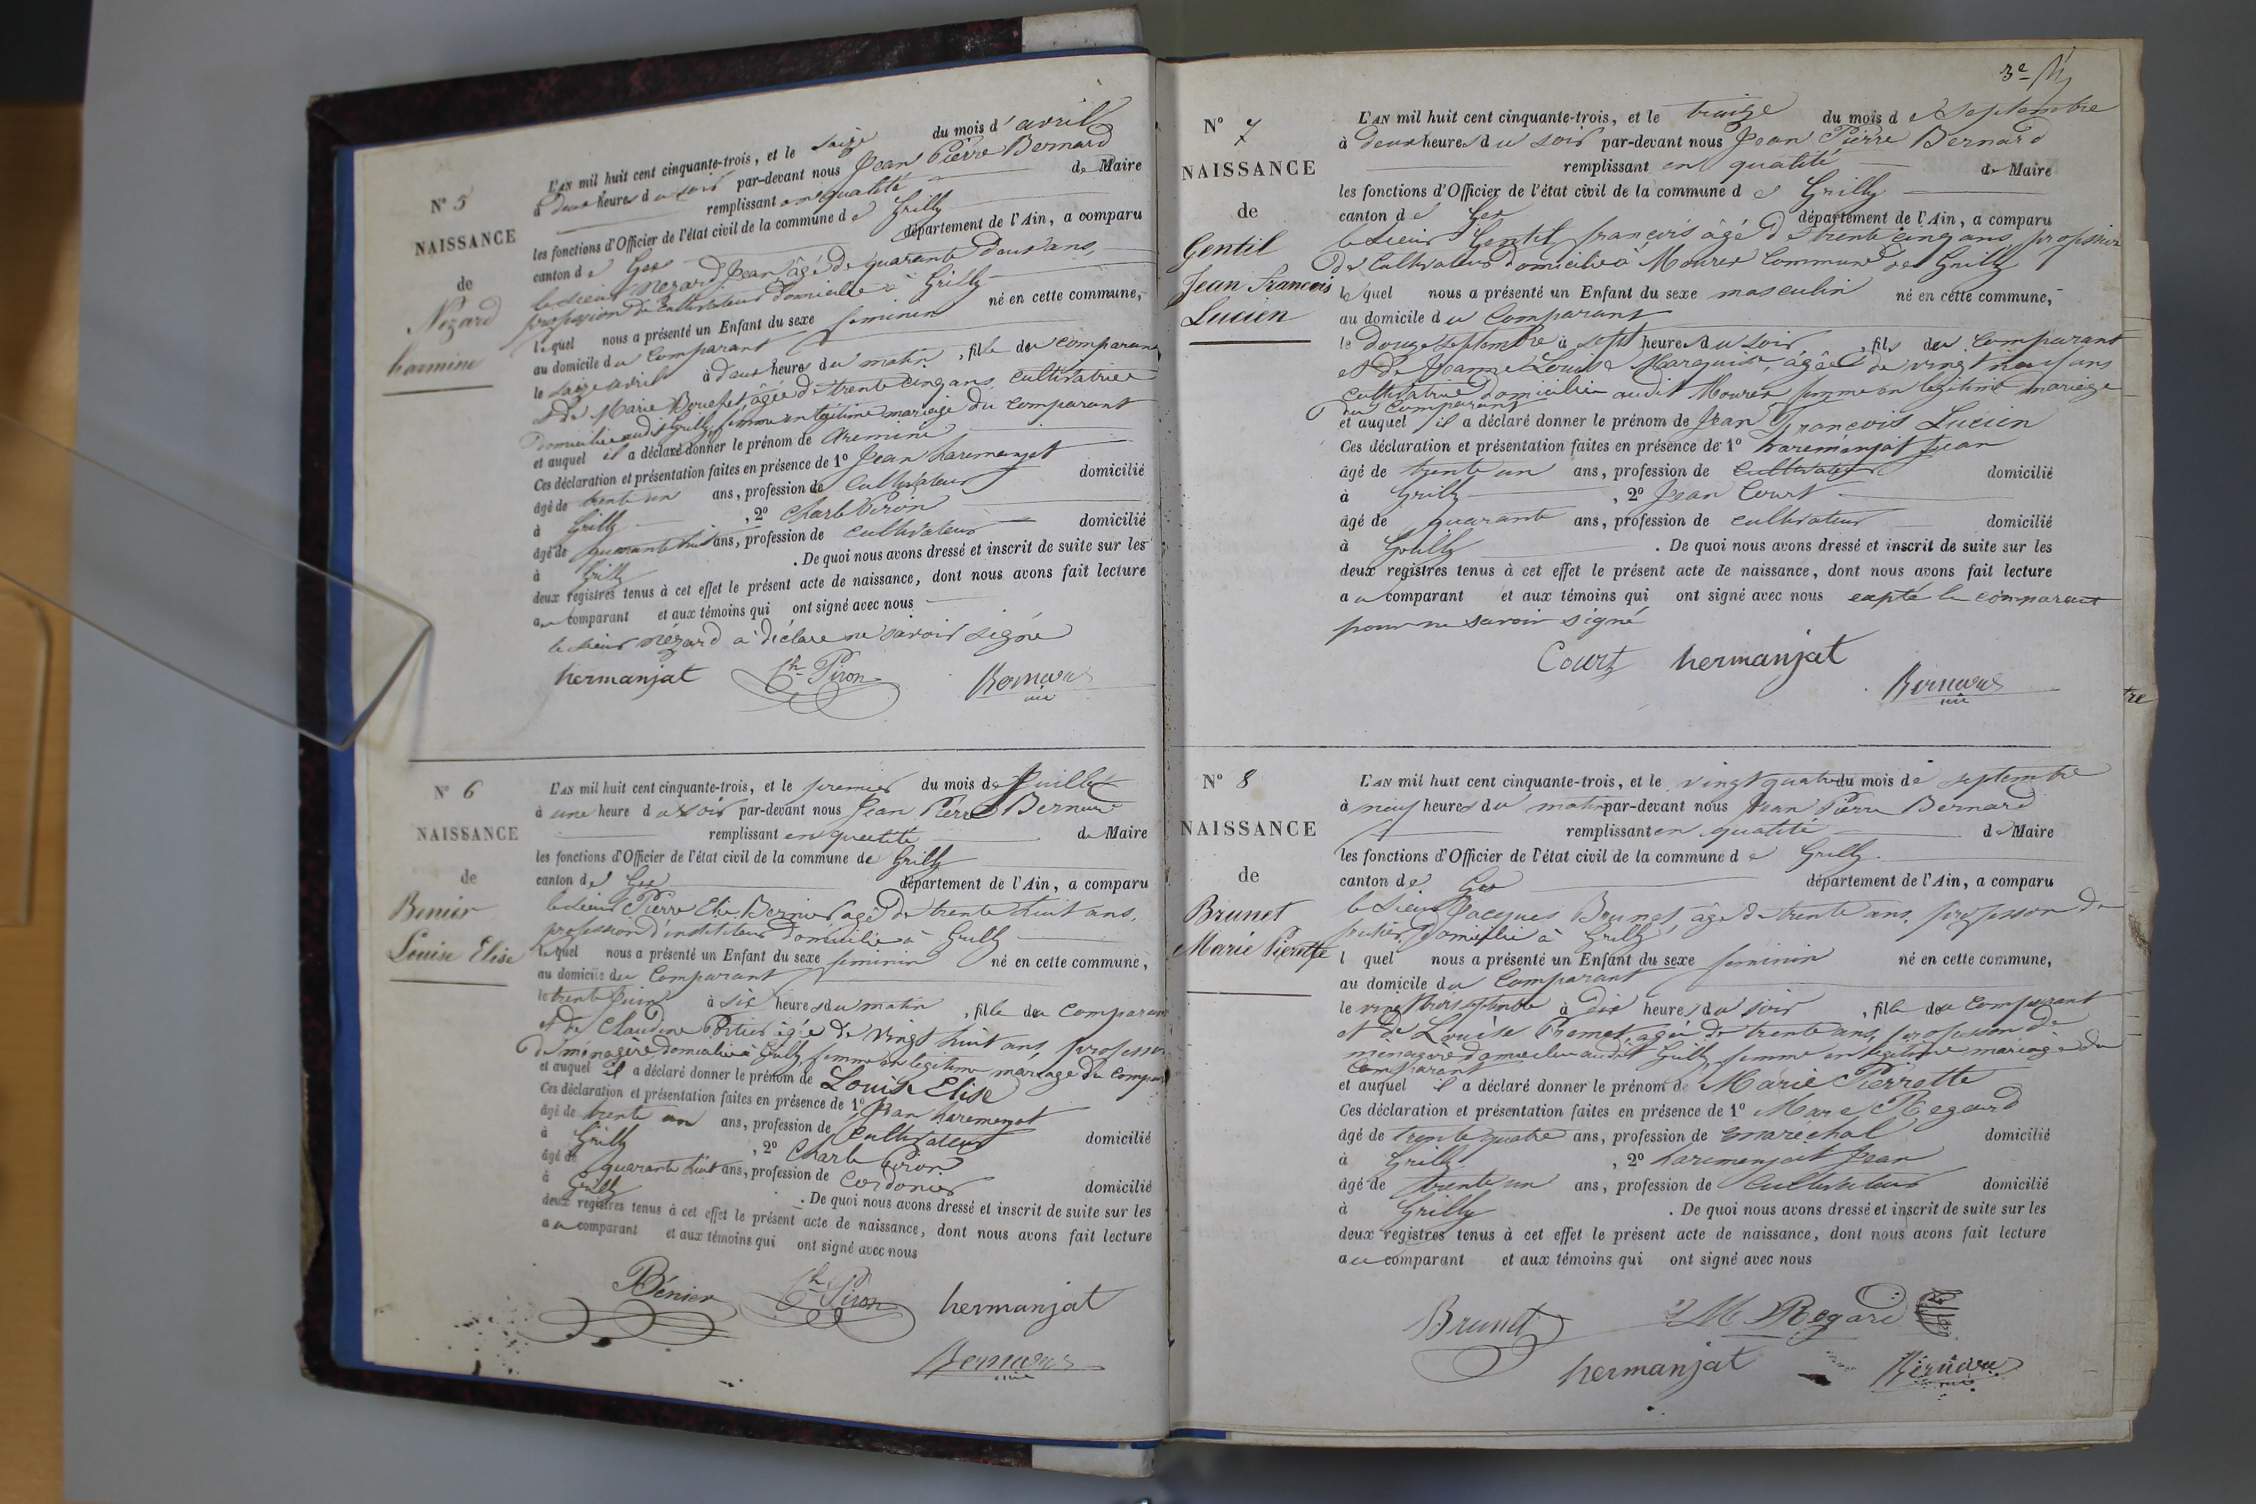 N° 5
NAISSANCE
de
Nezard
harmine
L'AN mil huit cent cinquante-trois, et le seize du mois d'avril
à deux heures du soir par-devant nous Jean Pierre Bernard
remplissant en qualité de Maire
les fonctions d'Officier de l'état civil de la commune de Grilly
canton de Gex département de l'Ain, a comparu
le sieur Nezard Jean âgé de quarante deux ans,
profession de Cultivateur domicilié à Grilly
lequel nous a présenté un Enfant du sexe feminin né en cette commune,
au domicile du Comparant
le seize avril à deux heures du matin, fille du comparant
et de Marie Bouchet, âgée de trente cinq ans, cultivatrice
domiciliée audit Grilly, femme en légitime mariage du comparant
et auquel il a déclaré donner le prénom de Aremine
Ces déclaration et présentation faites en présence de 1° Jean haremenjat
âgé de trente un ans, profession de Cultivateur domicilié
à Grilly, 2° Charle Piron
âgé de quarante huit ans, profession de cultivateur domicilié
à Grilly. De quoi nous avons dressé et inscrit de suite sur les
deux registres tenus à cet effet le présent acte de naissance, dont nous avons fait lecture
au comparant et aux témoins qui ont signé avec nous
le sieur Nézard a déclaré ne savoir signé
hermanjat Ch Piron Bernard
N° 6
NAISSANCE
de
Benier
Louise Elise
L'AN mil huit cent cinquante-trois, et le premier du mois de Juillet
à une heure du soir par-devant nous Jean Pierre Bernard
remplissant en qualité de Maire
les fonctions d'Officier de l'état civil de la commune de Grilly
canton de Gex département de l'Ain, a comparu
le sieur Pierre Elie Bernier âgé de trente huit ans,
profession d'instituteur domicilié à Grilly
lequel nous a présenté un Enfant du sexe feminin né en cette commune,
au domicile du Comparant
le trente Juin à six heures du matin, fille du comparant
et de Claudine Portier âgée de vingt huit ans, profession
de ménagère domiciliée à Grilly femme en légitime mariage du compar
et auquel il a déclaré donner le prénom de Louise Elise
Ces déclaration et présentation faites en présence de 1° Jean haremenjat
âgé de trente un ans, profession de Cultivateur domicilié
à Grilly, 2° Charle Piron
âgé de quarante huit ans, profession de Cordonier domicilié
à Grilly. De quoi nous avons dressé et inscrit de suite sur les
deux registres tenus à cet effet le présent acte de naissance, dont nous avons fait lecture
au comparant et aux témoins qui ont signé avec nous
Bénier Ch Piron hermanjat
Bernard
3e
N° 7
NAISSANCE
de
Gentil
Jean Francois
Lucien
L'AN mil huit cent cinquante-trois, et le treize du mois de Septembre
à deux heures du soir par-devant nous Jean Pierre Bernard
remplissant en qualité de Maire
les fonctions d'Officier de l'état civil de la commune de Grilly
canton de Gex département de l'Ain, a comparu
le Sieur Gentil francois âgé de trente cinq ans, profession
de Cultivateur domicilié à Mourex Commune de Grilly
lequel nous a présenté un Enfant du sexe masculin né en cette commune,
au domicile du Comparant
le Douze septembre à sept heures du soir, fils du Comparant
et de Jeanne Louise Marquis, âgée de vingt neuf ans
cultivatrice domiciliée audit Mourex femme en légitime mariage
du comparant
et auquel il a déclaré donner le prénom de Jean Francois Lucien
Ces déclaration et présentation faites en présence de 1° haremenjat Jean
âgé de trente un ans, profession de Cultivateur domicilié
à Grilly, 2° Jean Court
âgé de quarante ans, profession de cultivateur domicilié
à Grilly. De quoi nous avons dressé et inscrit de suite sur les
deux registres tenus à cet effet le présent acte de naissance, dont nous avons fait lecture
au comparant et aux témoins qui ont signé avec nous expté le comparant
pour ne savoir signé
Court hermanjat
Bernard
tre
N° 8
NAISSANCE
de
Brunet
Marie Pierrette
L'AN mil huit cent cinquante-trois, et le vingt quatre du mois de septembre
à neuf heures du matin par-devant nous Jean Pierre Bernard
remplissant en qualité de Maire
les fonctions d'Officier de l'état civil de la commune de Grilly
canton de Gex département de l'Ain, a comparu
le Sieur Jacques Brunet, âgé de trente ans, profession de
domicilié à Grilly
l quel nous a présenté un Enfant du sexe feminin né en cette commune,
au domicile du Comparant
le vingt trois septembre à dix heures du soir, fille du Comparant
et de Louise Premet, agée de trente ans, profession de
ménagère domiciliée audit Grilly femme en légitime mariage du
Comparant
et auquel il a déclaré donner le prénom de Marie Pierrette
Ces déclaration et présentation faites en présence de 1° Marc Regard
âgé de trente quatre ans, profession de maréchal domicilié
à Grilly, 2° haremenjat Jean
âgé de trente un ans, profession de Cultivateur domicilié
à Grilly. De quoi nous avons dressé et inscrit de suite sur les
deux registres tenus à cet effet le présent acte de naissance, dont nous avons fait lecture
au comparant et aux témoins qui ont signé avec nous
Brunet M Regard
hermanjat Bernard